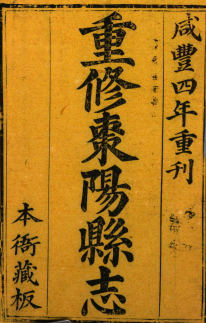 咸豐四年重刊
重修棗陽縣志
本衙藏板